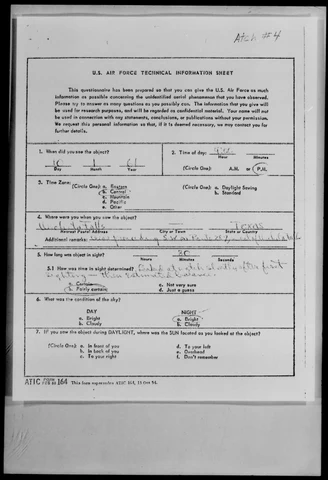 Atch #4
U.S. AIR FORCE TECHNICAL INFORMATION SHEET
This questionnaire has been prepared so that you can give the U.S. Air Force as much
information as possible concerning the unidentified aerial phenomenon that you have observed.
Please try to answer as many questions as you possibly can. The information that you give will
be used for research purposes, and will be regarded as confidential material. Your name will not
be used in connection with any statements, conclusions, or publications without your permission.
We request this personal information so that, if it is deemed necessary, we may contact you for
further details.
1. When did you see the object?
10 1 61
Day Month Year
2. Time of day:
Hour Minutes
(Circle One): A.M. or P.M.
3. Time Zone:
(Circle One): a. Eastern
b. Central
c. Mountain
d. Pacific
e. Other
(Circle One): a. Daylight Saving
b. Standard
4. Where were you when you saw the object?
Texas
Nearest Postal Address City or Town State or County
Additional remarks:
5. How long was object in sight?
Hours Minutes Seconds
5.1 How was time in sight determined?
a. Certain
b. Fairly certain
c. Not very sure
d. Just a guess
6. What was the condition of the sky?
DAY
a. Bright
b. Cloudy
NIGHT
a. Bright
b. Cloudy
7. IF you saw the object during DAYLIGHT, where was the SUN located as you looked at the object?
(Circle One): a. In front of you
b. In back of you
c. To your right
d. To your left
e. Overhead
f. Don't remember
ATIC FORM 164 This form supersedes ATIC 164, 13 Oct 54.